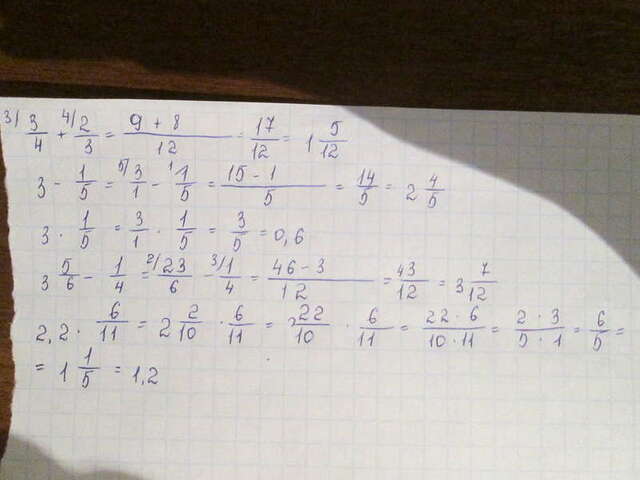 3/ 3/4 + 4/ 2/3 = (9 + 8)/12 = 17/12 = 1 5/12
3 - 1/5 = 5/ 3/1 - 1/ 1/5 = (15 - 1)/5 = 14/5 = 2 4/5
3 · 1/5 = 3/1 · 1/5 = 3/5 = 0,6
3 5/6 - 1/4 = 2/ 23/6 - 3/ 1/4 = (46 - 3)/12 = 43/12 = 3 7/12
2,2 · 6/11 = 2 2/10 · 6/11 = 22/10 · 6/11 = (22 · 6)/(10 · 11) = (2 · 3)/(5 · 1) = 6/5 =
= 1 1/5 = 1,2